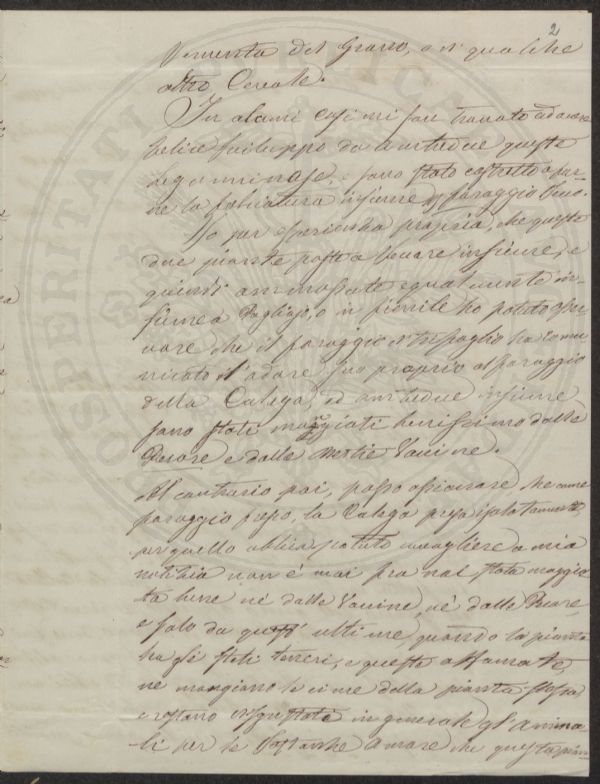 2
Sementa del Grano, o d'qualche
altro Cereale.
In alcuni casi mi son trovato ad avere
felice sviluppo da amendue queste
leguminose, e sono stato costretto a far-
ne la falciatura insieme foraggio
Io per esperienza propria, che queste
due piante poste a seccare insieme, e
quindi ammassate egualmente in-
sieme a Pagliajo, o in fienile ho potuto osser-
vare che il foraggio ha comu-
nicato l'odore suo proprio al foraggio
della Galega, ed amendue insieme
sono stati mangiati benissimo dalle
Pecore e dalle bestie Vaccine.
Al contrario poi, posso assicurare che come
foraggio fresco, la Galega presa isolatamente
per quello abbia potuto a mia
notizia non è mai fra noi stata mangia-
ta bene nè dalle Vaccine, nè dalle Pecore
e solo da quest' ultime, quando la pianta
ha gli steli teneri, e queste affamate,
ne mangiano le cime della pianta stessa
e restano disgustati in generale gl'Anima-
li per le sostanze amare che questa pian-
PROSPERITATI PUBLICAE